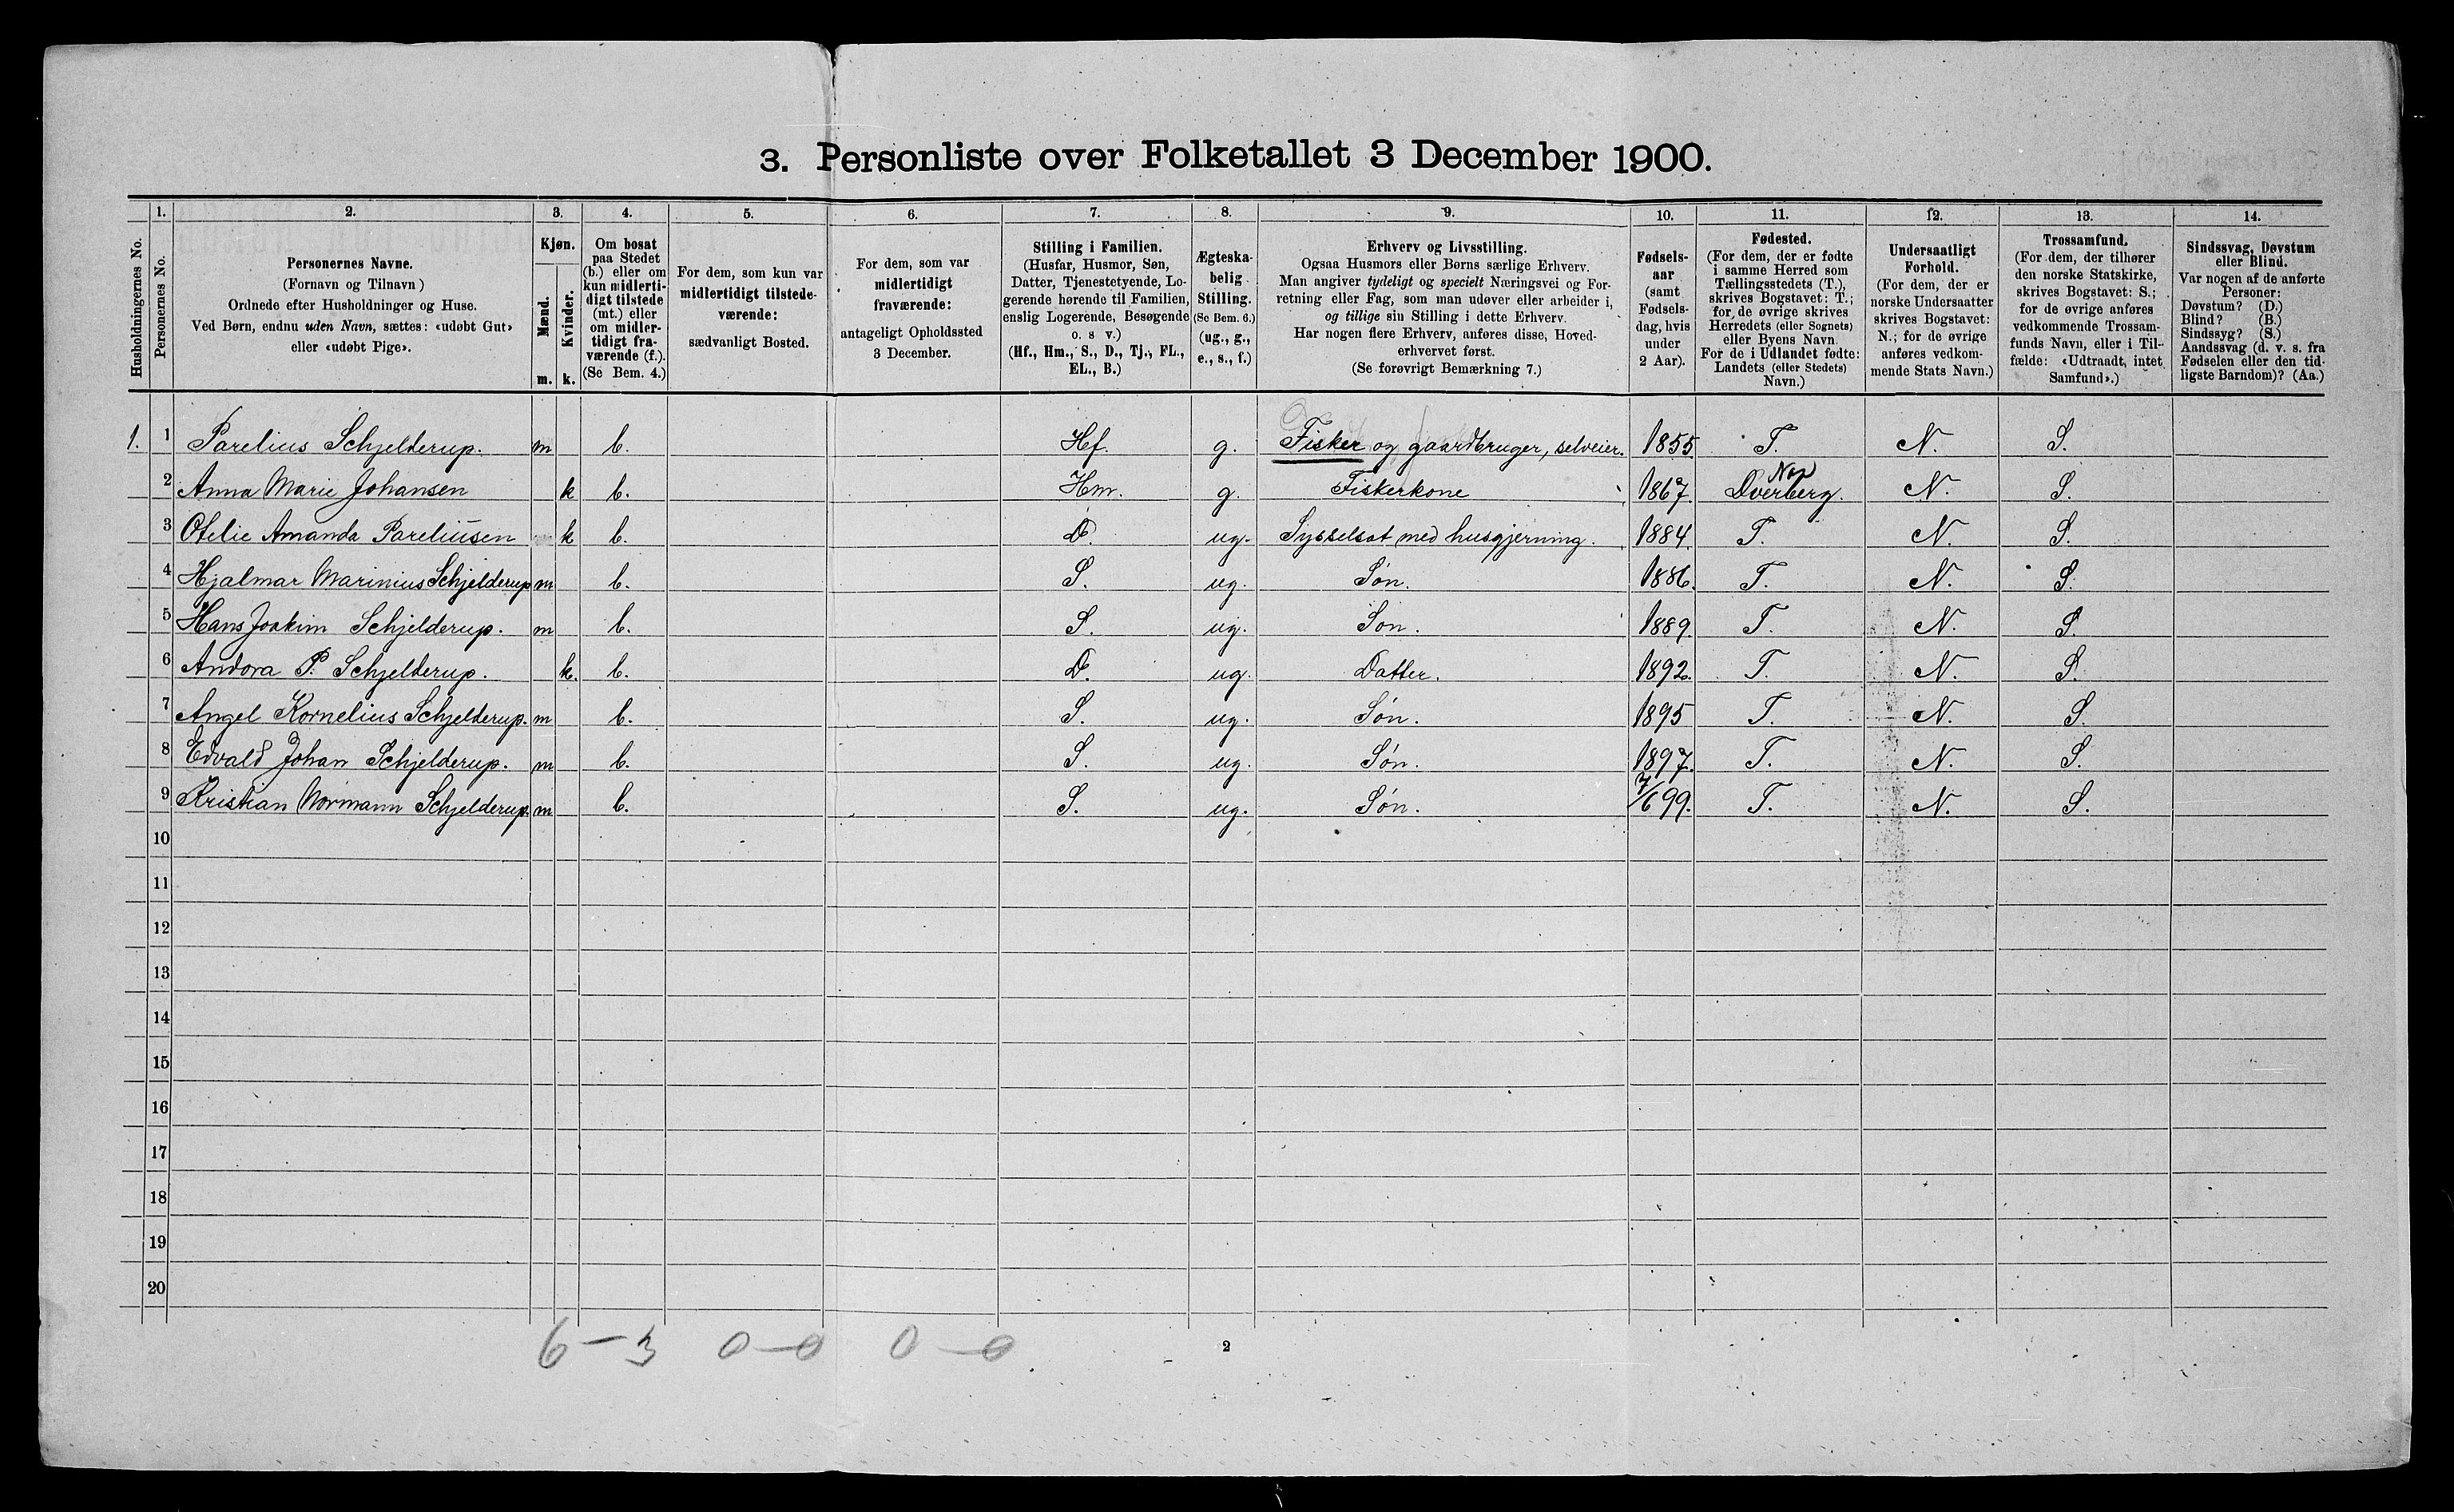 3. Personliste over Folketallet 3 December 1900.
1. 2. 3. 4. 5. 6. 7. 8. 9. 10. 11. 12. 13. 14.
Husholdningernes No.
Personernes No.
Personernes Navne.
(Fornavn og Tilnavn)
Ordnede efter Husholdninger og Huse.
Ved Børn, endnu uden Navn, sættes: «udøbt Gut»
eller «udøbt Pige».
Kjøn.
Mænd.
Kvinder.
m. k.
Om bosat
paa Stedet
(b.) eller om
kun midlerti-
digt tilstede
(mt.) eller
om midler-
tidigt fra-
værende (f.).
(Se Bem. 4.)
For dem, som kun var
midlertidigt tilstede-
værende:
sædvanligt Bosted.
For dem, som var
midlertidigt
fraværende:
antageligt Opholdssted
3 December.
Stilling i Familien.
(Husfar, Husmor, Søn,
Datter, Tjenestetyende, Lo-
gerende hørende til Familien,
enslig Logerende, Besøgende
o. s v.)
(Hf., Hm., S., D., Tj., FL.,
EL., B.)
Ægteska-
belig
Stilling.
(Se Bem. 6.)
(ug., g.,
e., s., f.)
Erhverv og Livsstilling.
Ogsaa Husmors eller Børns særlige Erhverv.
Man angiver tydeligt og specielt Næringsvei og For-
retning eller Fag, som man udøver eller arbeider i,
og tillige sin Stilling i dette Erhverv.
Har nogen flere Erhverv, anføres disse, Hoved-
erhvervet først.
(Se forøvrigt Bemærkning 7.)
Fødsels-
aar
(samt
Fødsels-
dag, hvis
under
2 Aar).
Fødested.
(For dem, der er fødte
i samme Herred som
Tællingsstedets (T.),
skrives Bogstavet: T.;
for de øvrige skrives
Herredets (eller Sognets)
eller Byens Navn.
For de i Udlandet fødte:
Landets (eller Stedets)
Navn.)
Undersaatligt
Forhold.
(For dem, der er
norske Undersaatter
skrives Bogstavet:
N.; for de øvrige
anføres vedkom-
mende Stats Navn.)
Trossamfund.
(For dem, der tilhører
den norske Statskirke,
skrives Bogstavet: S.;
for de øvrige anføres
vedkommende Trossam-
funds Navn, eller i Til-
fælde: «Udtraadt, intet
Samfund».)
Sindssvag, Døvstum
eller Blind.
Var nogen af de anførte
Personer:
Døvstum? (D.)
Blind? (B.)
Sindssyg? (S.)
Aandssvag (d. v. s. fra
Fødselen eller den tid-
ligste Barndom)? (Aa.)
1. 1 Parelius Schjelderup. m b. Hf. g. Fisker og gaardbruger, selveier. 1855 T. N. S.
2 Anna Marie Johansen k b. Hm. g. Fiskerkone 1867. Dverberg. N. S.
3 Ofelie Amanda Pareliusen k b. D. ug. Sysselsat med husgjerning. 1884. T. N. S.
4 Hjalmar Marinius Schjelderup m b. S. ug. Søn. 1886. T. N. S.
5 Hans Joakim Schjelderup. m b. S. ug. Søn. 1889. T. N. S.
6 Andora P. Schjelderup. k. b. D. ug. Datter. 1892. T. N. S.
7 Angel Kornelius Schjelderup. m b. S. ug. Søn. 1895 T. N. S.
8 Edvald Johan Schjelderup. m b. S. ug. Søn. 1897. T. N. S.
9 Kristian Normann Schjelderup. m b. S. ug. Søn. 7/6 99. T. N. S.
10
11
12
13
14
15
16
17
18
19
20
6 – 3 0 – 0 0 – 0
2